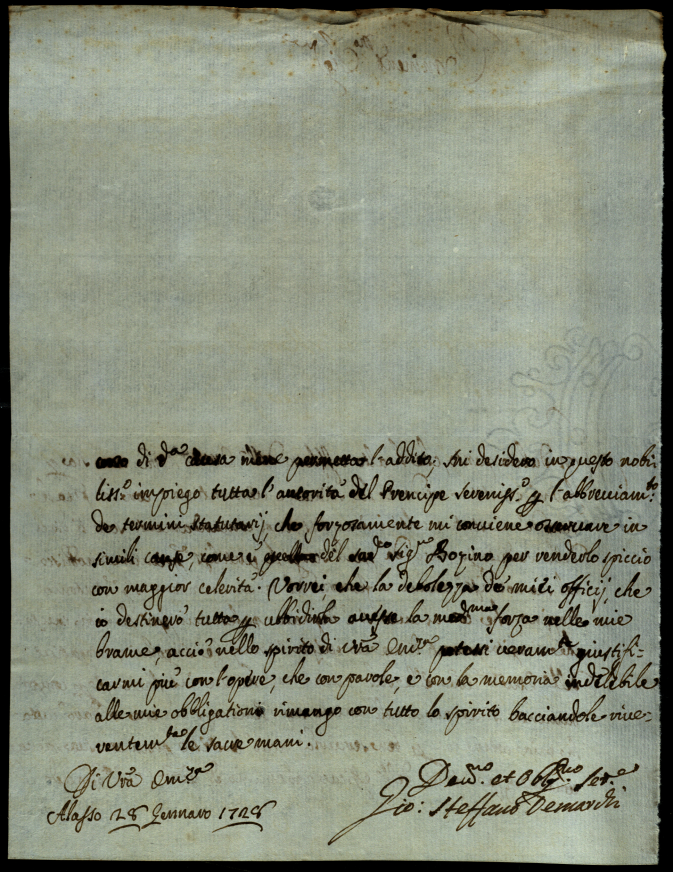 di d.ª causa me ne permette l'addita. Ani desidero in questo nobi-
liss.º impiego tutta l'autorità del Prencipe Sereniss.º p l'abbreviam.to
de termini statutarij, che forzosamente mi conviene osservare in
simili cause, come è quella del sud.º Sig.re Bozino per renderlo spiccio
con maggior celerità. Vorrei, che la debolezza de miei officij, che
io destinerò tutta p ubbidirla avesse la med.ma forza nelle mie
brame, acciò nello spirito di Vrã Em.za potessi veram.te giustifi-
carmi più con l'opere, che con parole, e con la memoria indelebile
alle mie obbligationi rimango con tutto lo spirito bacciandole rive-
rentem.te le sacre mani.
Di Vrã Em.za
Alasso 28 Gennaro 1728
Dev.mo et Obblg.mo Ser.e
Gio: Steffano Demarchi